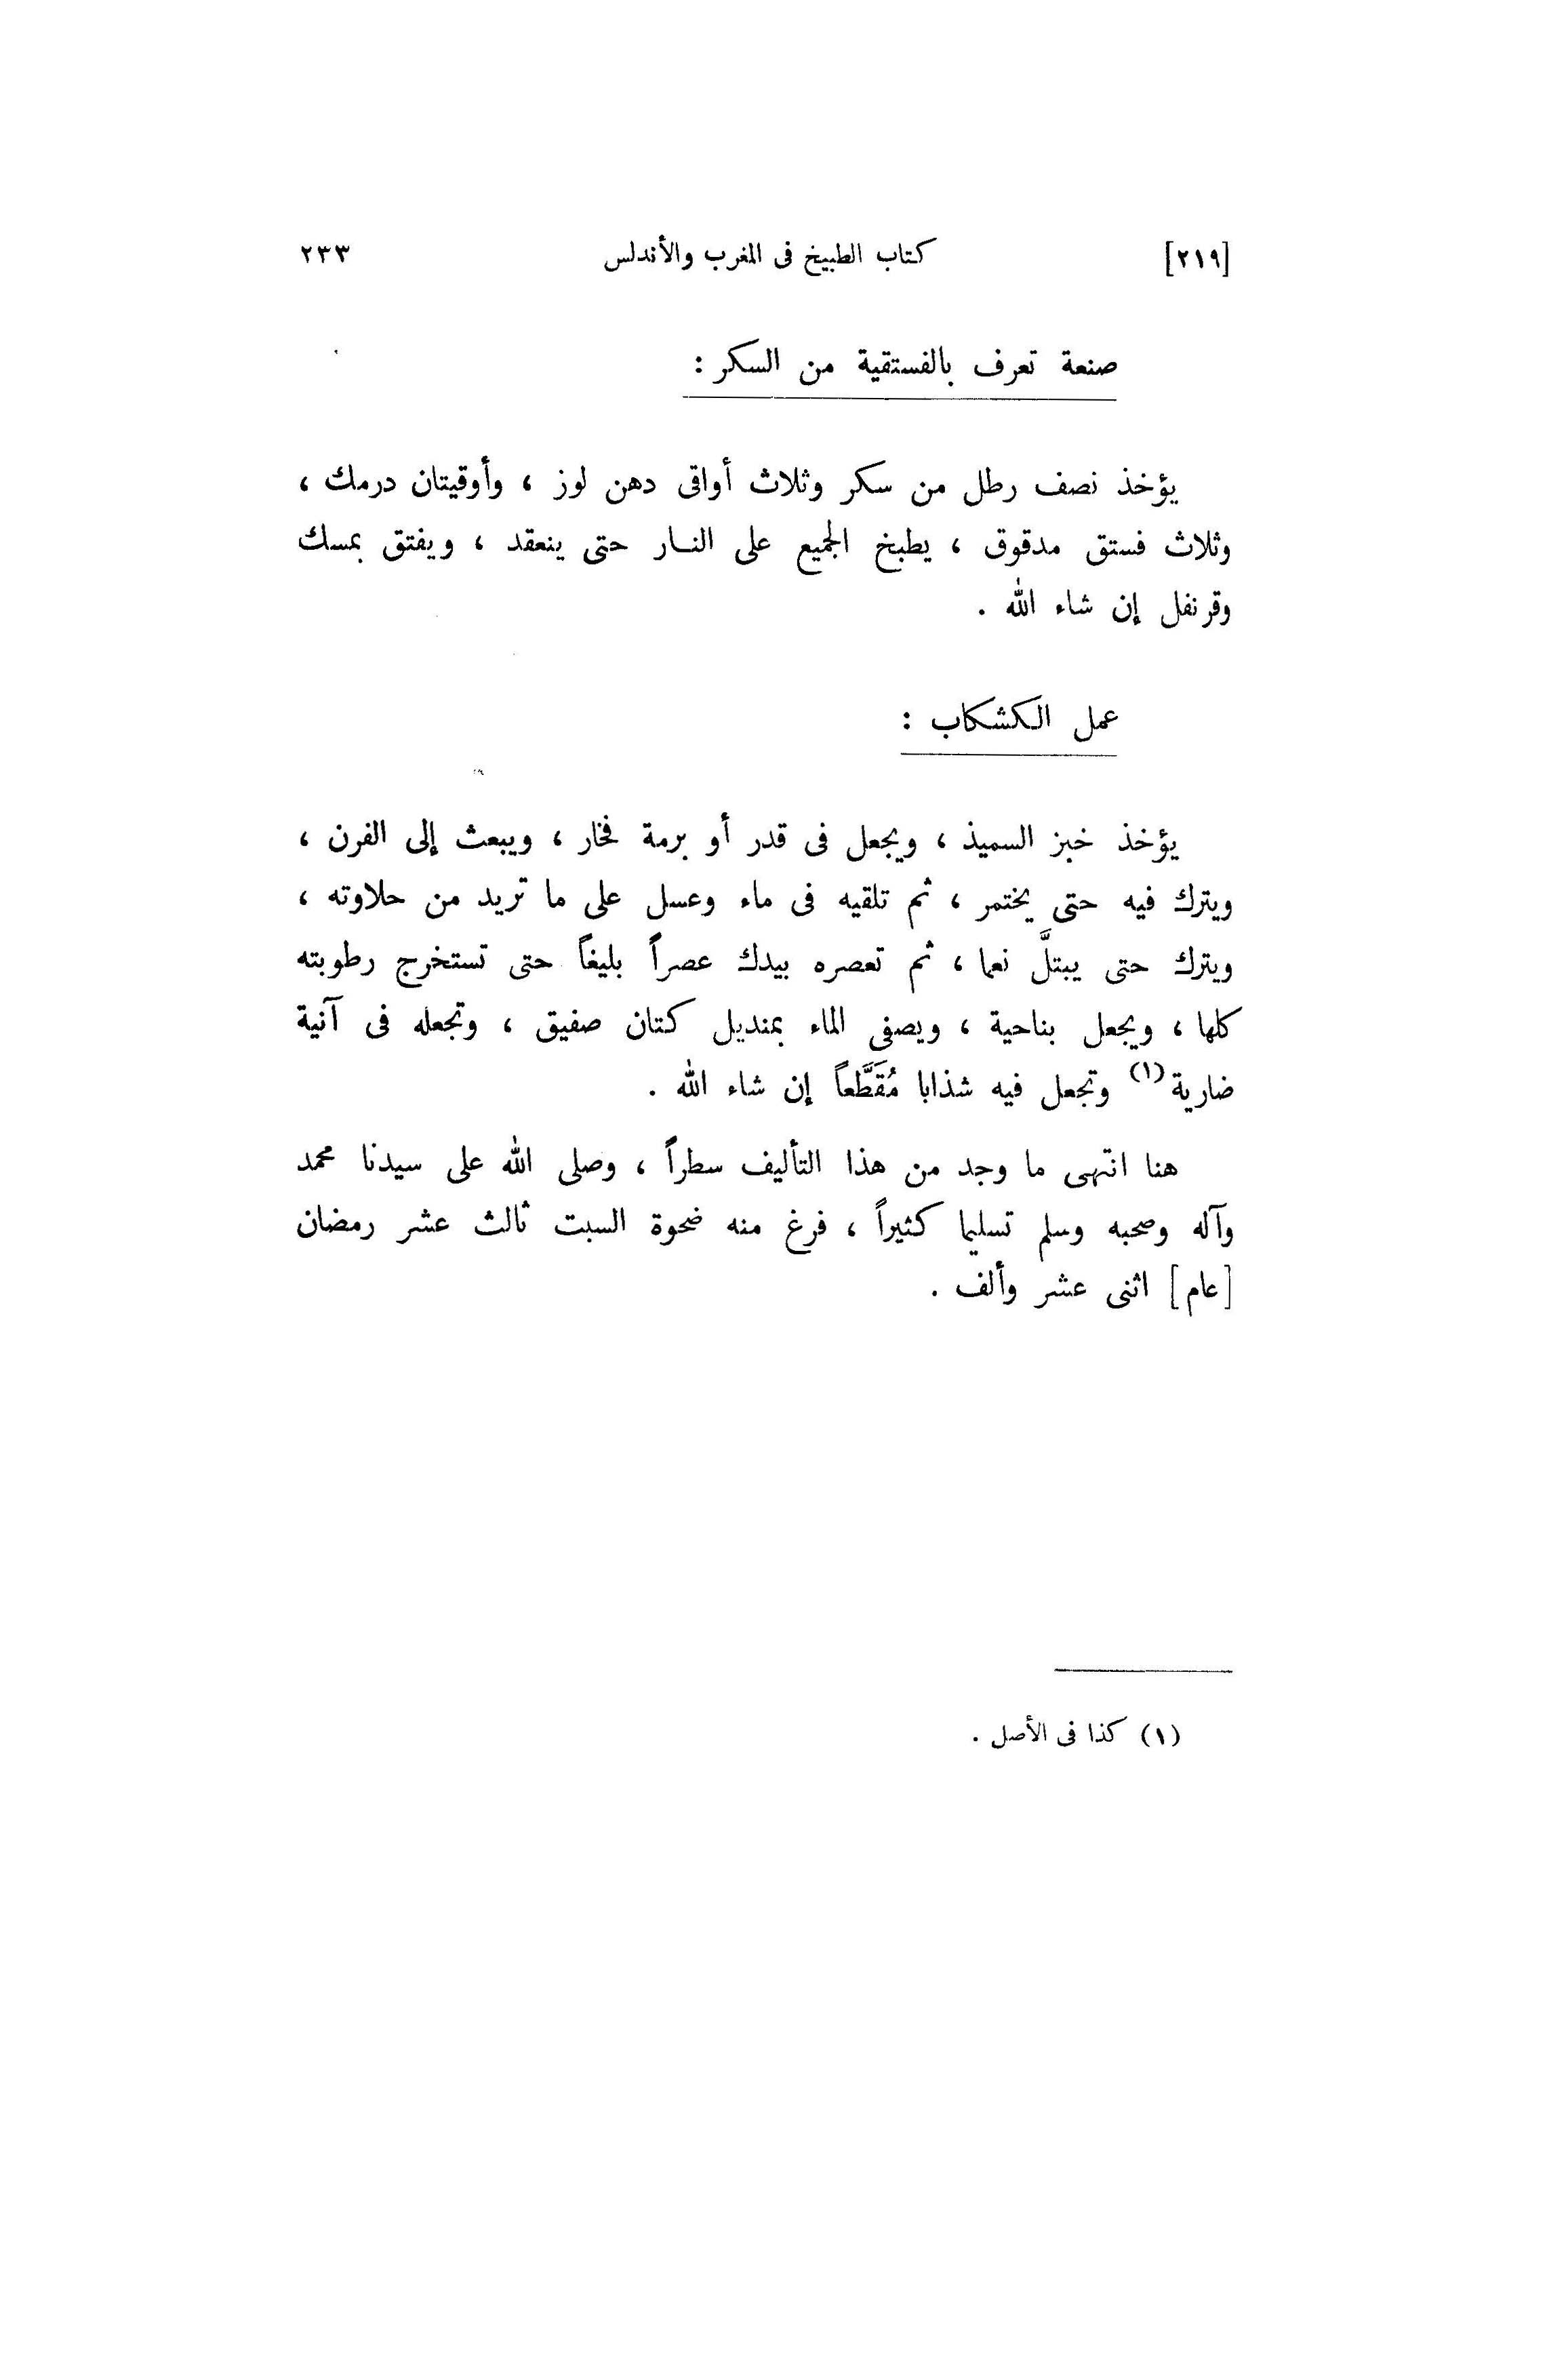 [٢١٩] كتاب الطبيخ فى المغرب والأندلس ٢٣٣
صنعة تعرف بالفستقية من السكر :
يؤخذ نصف رطل من سكر وثلاث أواقى دهن لوز ، وأوقيتان درمك ،
وثلاث فستق مدقوق ، يطبخ الجميع على النــار حتى ينعقد ، ويفتق بمسك
وقرنفل إن شاء الله .
عمل الكشكاب :
يؤخذ خبز السميذ ، ويجعل فى قدر أو برمة فخار ، ويبعث إلى الفرن ،
ويترك فيه حتى يختمر ، ثم تلقيه فى ماء وعسل على ما تريد من حلاوته ،
ويترك حتى يبتلَّ نعما ، ثم تعصره بيدك عصراً بليغاً حتى تستخرج رطوبته
كلها ، ويجعل بناحية ، ويصفى الماء بمنديل كتان صفيق ، وتجعله فى آنية
ضارية (١) وتجعل فيه شذابا مُقَطَّعاً إن شاء الله .
هنا انتهى ما وجد من هذا التأليف سطراً ، وصلى الله على سيدنا محمد
وآله وصحبه وسلم تسليما كثيراً ، فرغ منه ضحوة السبت ثالث عشر رمضان
[عام] اثنى عشر وألف .
(١) كذا فى الأصل .